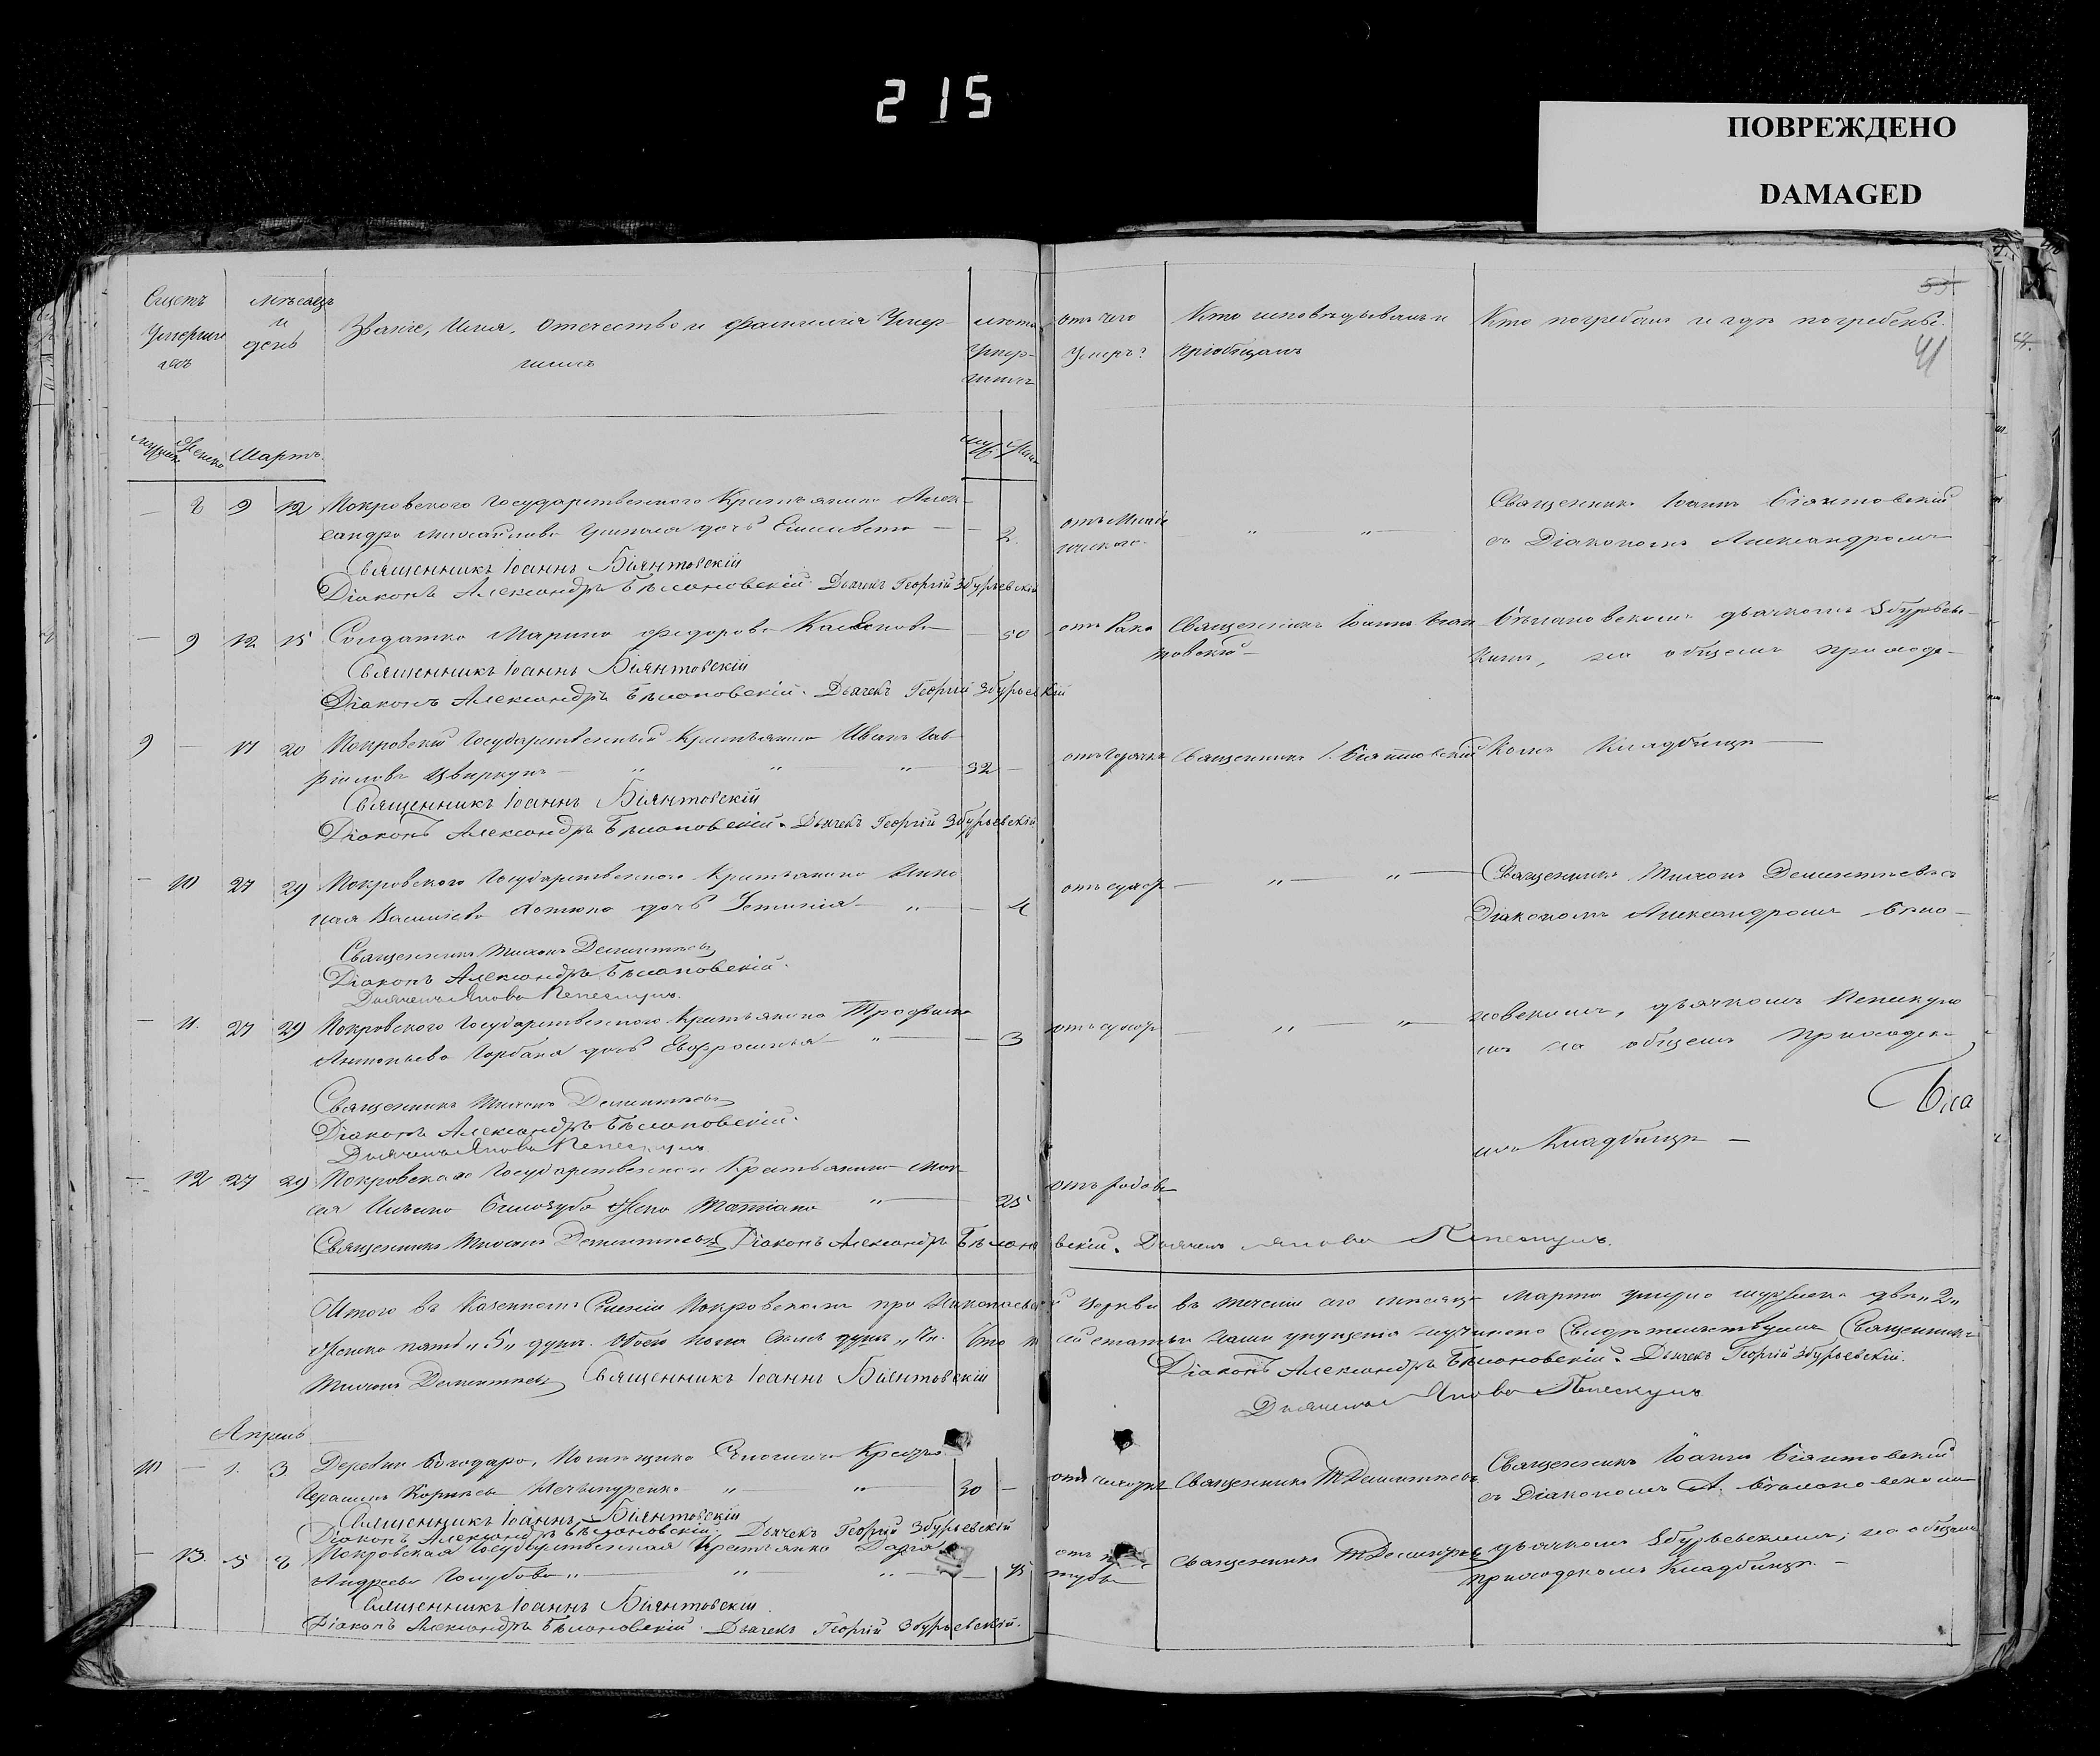 215
ПОВРЕЖДЕНО
DAMAGED
53.
41
Счетъ Умершихъ
мѣсяцъ и день
Званіе, Имя, Отечество и фамилія Умершихъ
лѣта Умершихъ
отъ чего Умеръ?
Кто исповѣдывалъ и пріобщалъ
Кто погребалъ и гдѣ погребены.
Мартъ.
8 9 12 Покровского Государственного Крестьянина Алек-
сандра Михайлова дочь Елисавета — 2.
отъ
Священникъ Іоаннъ Біянтовскій
съ Діакономъ Александромъ
Священникъ Іоаннъ Біянтовскій
Діаконъ Александръ Бѣлановскій. Дьячекъ Георгій Збурьевскій
9 12 15 Солдатка Марина Федорова — 50
отъ Рака Священникъ Іоаннъ Біян-
товскій
Бѣлановскимъ дьячкомъ Збурьевс-
кимъ, на общемъ приходс-
Священникъ Іоаннъ Біянтовскій
Діаконъ Александръ Бѣлановскій. Дьячекъ Георгій Збурьевскій
9 — 17 20 Покровскій Государственный Крестьянинъ Иванъ Гав-
риловъ Цвиркунъ — 32 —
отъ Горячк Священникъ І. Біянтовскій
комъ Кладбищѣ —
Священникъ Іоаннъ Біянтовскій
Діаконъ Александръ Бѣлановскій. Дьячекъ Георгій Збурьевскій
— 10 27 29 Покровского Государственного Крестьянина Нико-
лая Васильева дочь — 4
Священникъ Тихонъ Дементьевъ съ
Діакономъ Александромъ Бѣла-
Священникъ Тихонъ Дементьевъ
Діаконъ Александръ Бѣлановскій.
Дьячекъ Яковъ Пепескулъ.
— 11. 27 29 Покровского Государственного Крестьянина Трофима
Антоньева Горбаня дочь Евфросинія — 3
новскимъ, дьячкомъ
на общемъ приходск-
Священникъ Тихонъ Дементьевъ
Діаконъ Александръ Бѣлановскій.
Дьячекъ Яковъ Пепескулъ
Кладбищѣ —
12 27 29 Покровского Государственного Крестьянина
Ильина Билозуба Жена Татіана — 25
отъ родовъ
Священникъ Тихонъ Дементьевъ Діаконъ Александръ Бѣлановскій. Дьячекъ Яковъ Пепескулъ.
Итого въ Казенномъ Селеніи Покровскомъ при Николаевской церкви въ теченіи сего мѣсяца Марта умерло мужеска два „2„
Женска пять „5„ душъ. Обоего пола семь душъ „7„. Что по сей статьи нами упущенія неучинено Свидѣтельствуемъ Священникъ
Тихонъ Дементьевъ Священникъ Іоаннъ Біянтовскій
Діаконъ Александръ Бѣлановскій. Дьячекъ Георгій Збурьевскій.
Дьячекъ Яковъ Пепескулъ
Апрель
10 — 1. 3 Деревни Помѣщика
30 —
Священникъ Т. Дементьевъ
Священникъ Іоаннъ Біянтовскій
съ Діакономъ А. Бѣлановскимъ
Священникъ Іоаннъ Біянтовскій
Діаконъ Александръ Бѣлановскій. Дьячекъ Георгій Збурьевскій
— 13. 5 Покровская Государственная Крестьянка Дарія
Андреева Голубова „ —
Священникъ Т. Дементьевъ
дьячкомъ Збурьевскимъ, на общемъ
приходскомъ Кладбищѣ. —
Священникъ Іоаннъ Біянтовскій.
Діаконъ Александръ Бѣлановскій. Дьячекъ Георгій Збурьевскій.